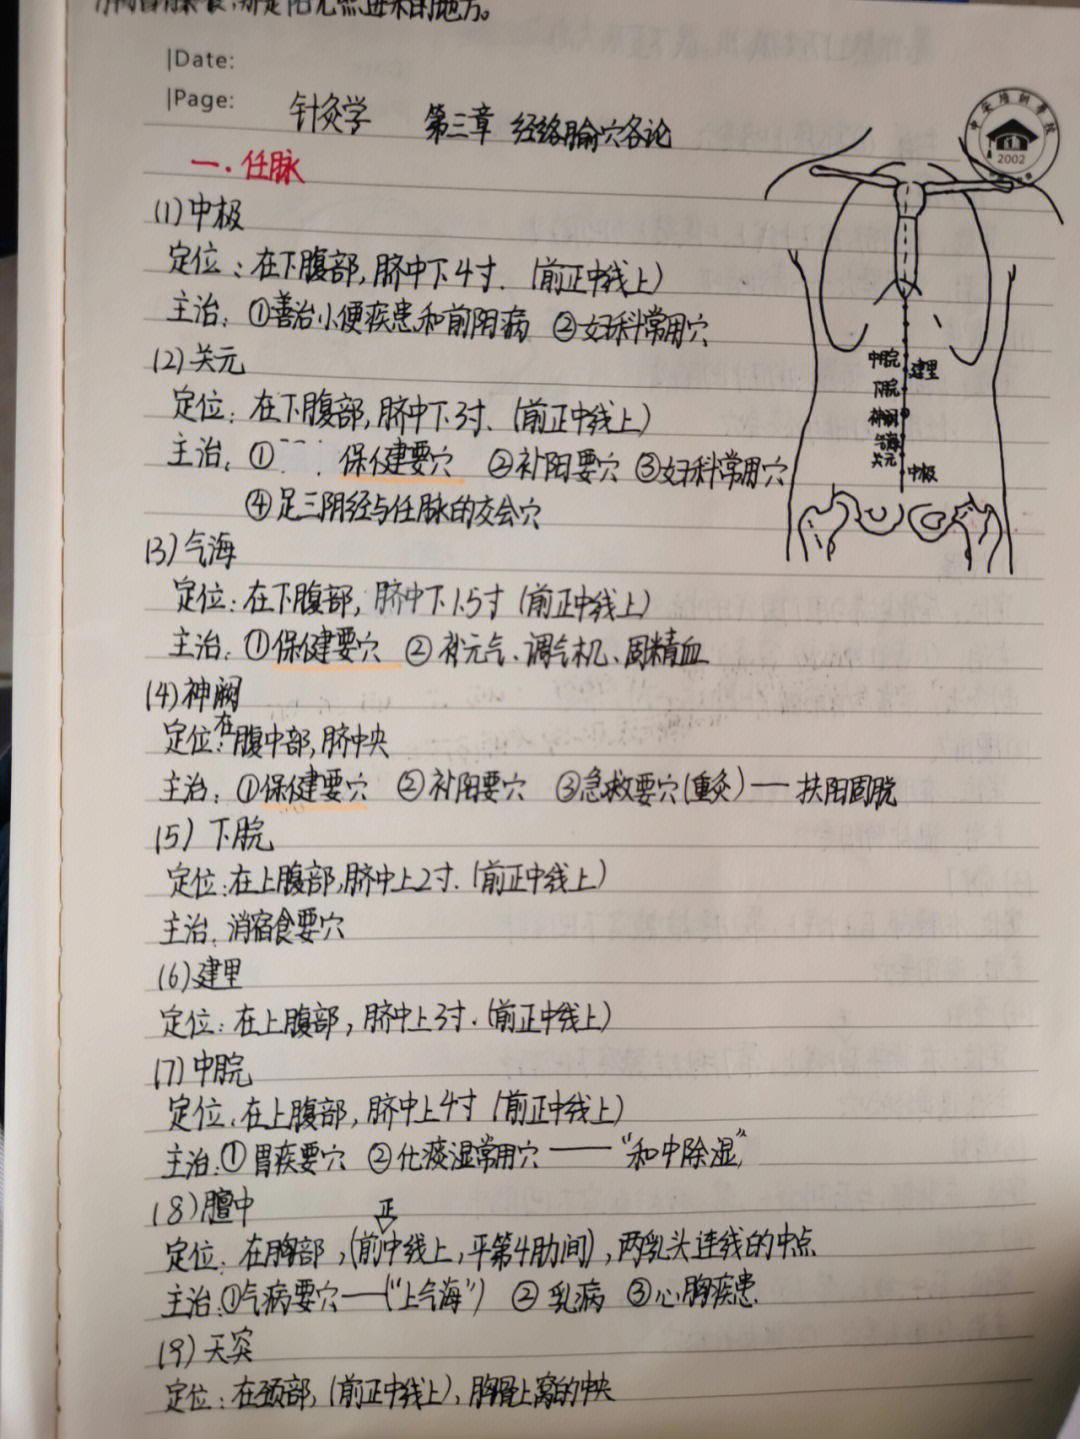 |Date:
|Page:
针灸学 第三章 经络腧穴各论
一.任脉
(1)中极
定位:在下腹部,脐中下4寸.(前正中线上)
主治:①善治小便疾患和前阴病 ②妇科常用穴
(2)关元
定位:在下腹部,脐中下3寸.(前正中线上)
主治:① 保健要穴 ②补阳要穴 ③妇科常用穴
④足三阴经与任脉的交会穴
(3)气海
定位:在下腹部,脐中下1.5寸(前正中线上)
主治:①保健要穴 ②补元气、调气机、固精血
(4)神阙
定位:在腹中部,脐中央
主治:①保健要穴 ②补阳要穴 ③急救要穴(重灸)——扶阳固脱
(5)下脘
定位:在上腹部,脐中上2寸.(前正中线上)
主治:消宿食要穴
(6)建里
定位:在上腹部,脐中上3寸.(前正中线上)
(7)中脘
定位:在上腹部,脐中上4寸(前正中线上)
主治:①胃疾要穴 ②化痰湿常用穴——“和中除湿”
(8)膻中
定位:在胸部,(前正中线上,平第4肋间),两乳头连线的中点
主治:①气病要穴—(“上气海”) ②乳病 ③心胸疾患
(9)天突
定位:在颈部,(前正中线上),胸骨上窝的中央
中脘
建里
下脘
神阙
气海
关元
中极
2002